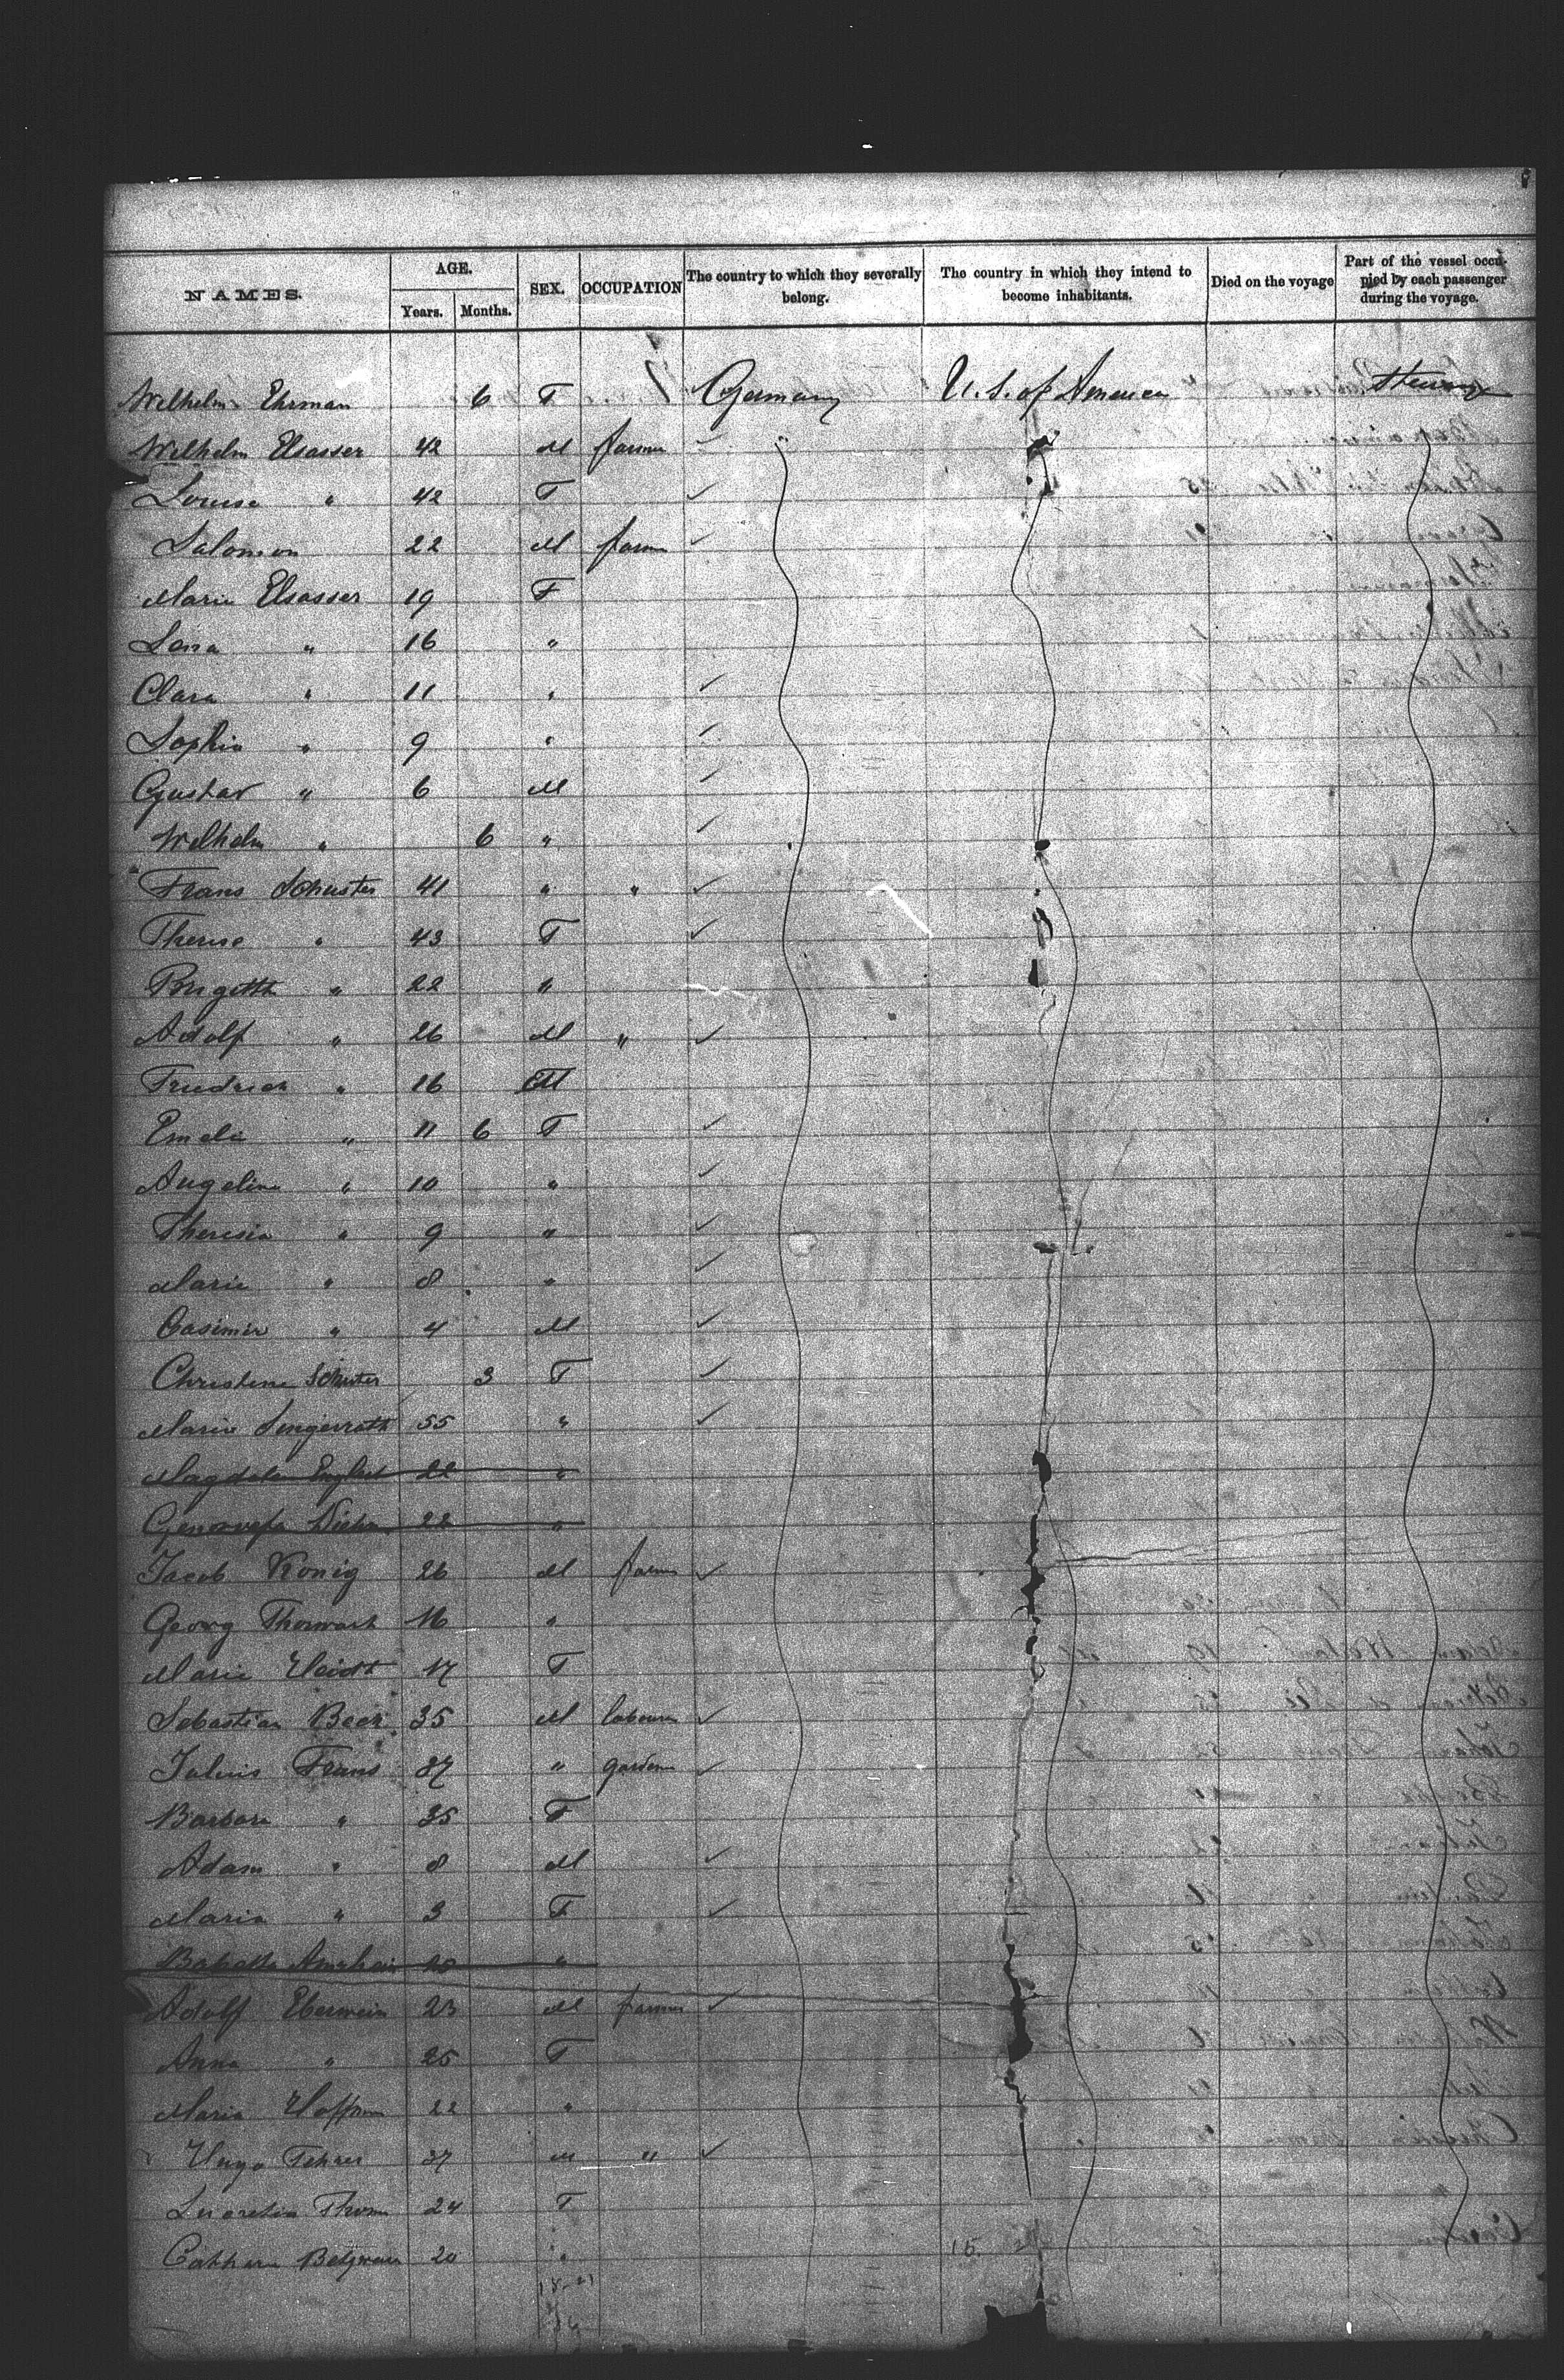 NAMES. AGE. Years. Months. SEX. OCCUPATION The country to which they severally belong. The country in which they intend to become inhabitants. Died on the voyage Part of the vessel occupied by each passenger during the voyage.
Wilhelm Ehrman 6 F Germany U. S. of America
Wilhelm Elsasser 42 M farmer
Louise " 42 F
Salomon 22 M farm
Marie Elsasser 19 F
Lena " 16 "
Clara " 11 "
Sophia " 9 "
Gustav " 6 M
Wilhelm " 6 "
Frans Schuster 41 " "
Therese " 43 F
Brigetta " 22 "
Adolf " 26 M "
Friedrich " 16 M
Emelie " 11 6 F
Angelina " 10 "
Theresia " 9 "
Marie " 8 "
Casimir " 4 M
Christine Schuster 3 F
Marie 55 "
Magdalen Englert 22 "
Genovefa 22 "
Jacob Konig 26 M farm
Georg 16 "
Marie Heidt 17 F
Sebastian Beck 35 M labourer
Julius Frans 37 " garden
Barbara " 35 F
Adam " 8 M
Maria " 3 F
Babetta 25 "
Adolf Eberwein 23 M farmer
Anna " 25 F
Maria Hoffman 22 "
Hugo Fehrer 37 M "
Lucretia Thom 24 F
20 "